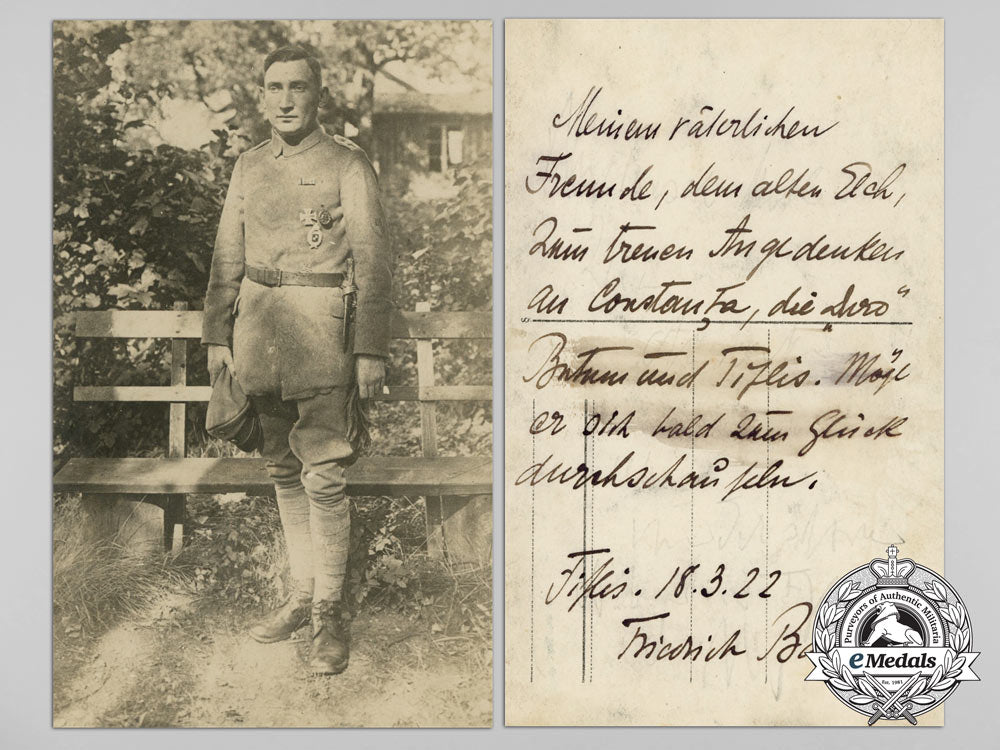 Meinem väterlichen
Freunde, dem alten Elch,
zum treuen Angedenken
an Constanţa, die „Duro“
Batum und Tiflis. Möge
er sich bald zum Glück
durchschaufeln.
Tiflis. 18.3.22
Friedrich
Purveyors of Authentic Militaria
eMedals
Est. 1981